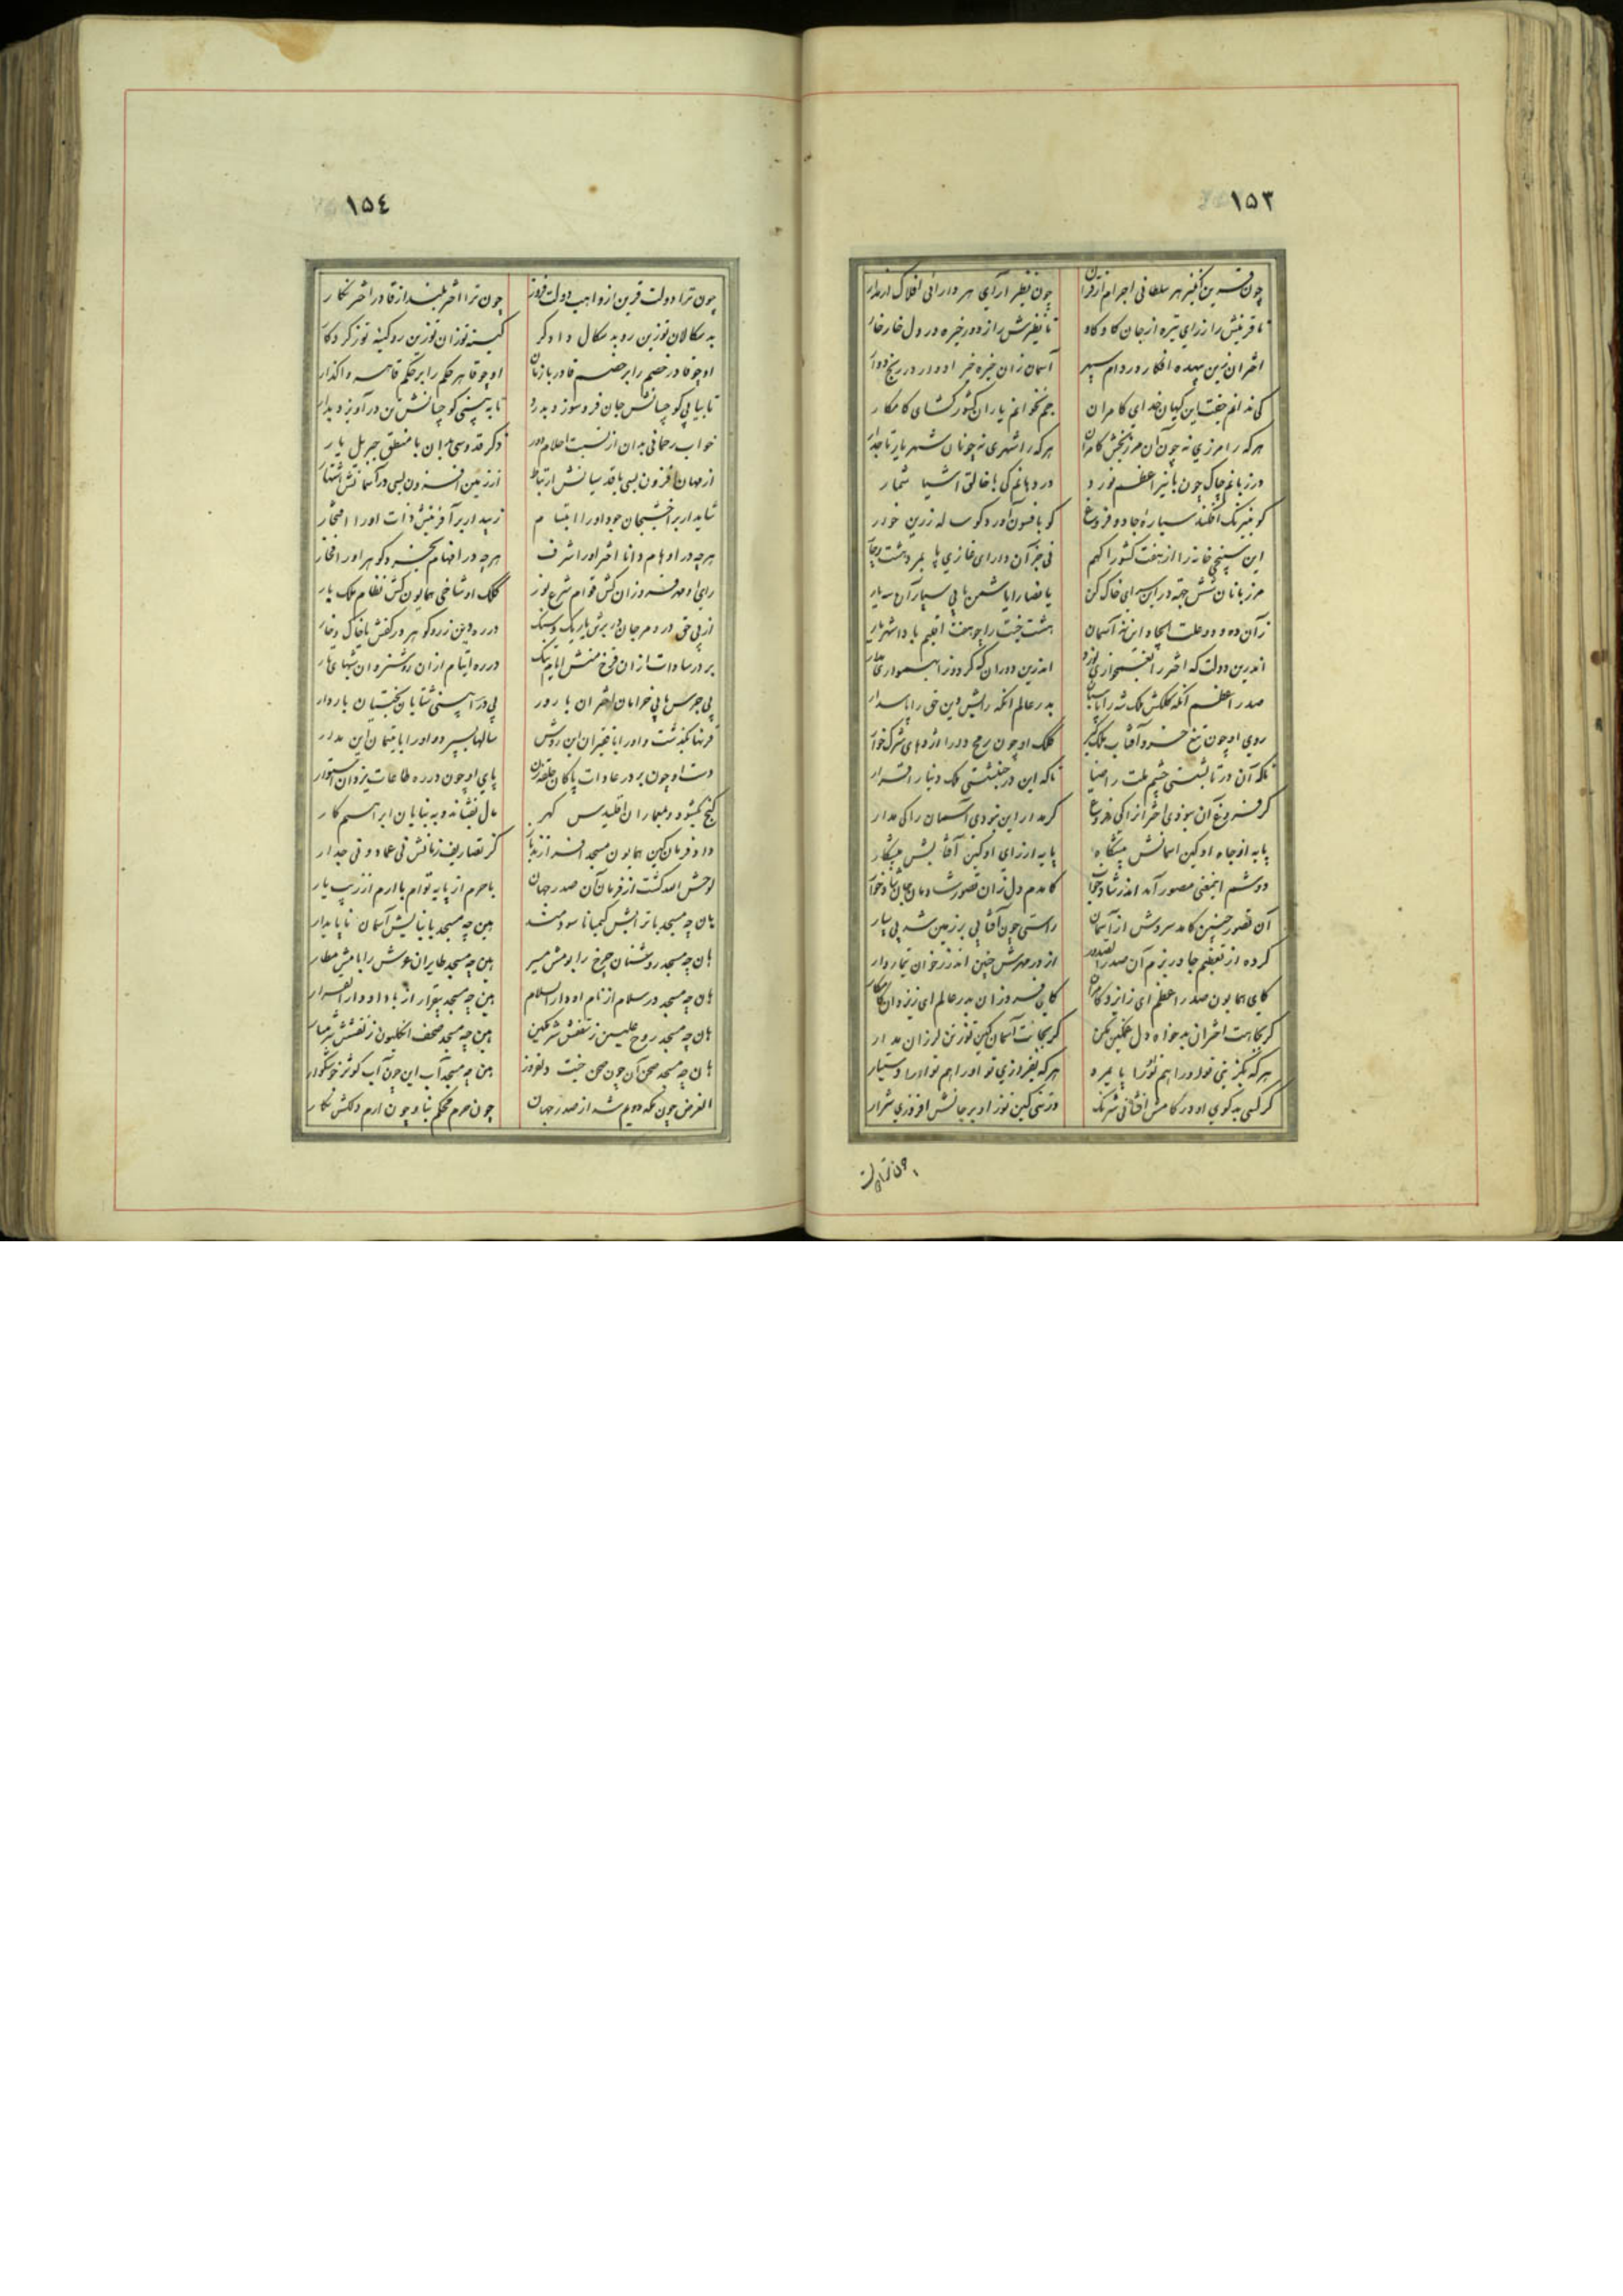 ١٥٣
چون قرین انگیز هر سلطانی اجرام از قران چون نظیر آرای هر دارائی افلاک از مدار
تا قرینش را ز رای تیره از جان کاو کاو تا نظیرش را ز دور خیره در دل خار خار
اختران زین بیهده افکار در دام سپهر آسمان زان خیره خیر ادوار در رنج دوار
کی ندانم جفت این کیهان خدای کامران جم نخوانم یار آن کشور گشای کامکار
هرکه را مرزی نه چون آن مرز بخش کامران هرکه را شهری نه چونان شهریار تاجدار
در زبانم چاک چون با نیر اعظم نور در دهانم کی با خالق اشیا شمار
کو بنیرنگ افکند سیاره جادو فروغ کو بافسون آورد گوساله زرین خوار
این سپنجی خانه را از هفت کشور آگهم نی جز آن دارای غازی
مرزبانان شش جهة در این سرای خاک کن
زان ده و دو علت ایجاد این نه آسمان هشت جنت را چو هفت اقلیم باد شهریار
اندرین دولت که اختر را اندرین دوران که گردون را
صدر اعظم آنکه کلکش ملک شه را پاسبان بدر عالم آنکه رایش دین حق را پاسدار
روی او چون تیغ خسرو آفتاب ملک گیر کلک او چون رمح دارا اژدهای شرک خوار
نکه آن در تابشستی چشم ملت را ضیا نکه این در جنبشستی ملک دنیا را قرار
گر فروغ آن نبودی اختران را کی فروغ گر مدار این نبودی آسمان را کی مدار
پایه از جاه او کین آسمانش پیشگاه پایه از رای او کین آفتابش پیشکار
دوشم اینمعنی مصور آمد اندر شاد خواب کامدم دل زان تصور شادمان جان شادخوار
آن تصور چیست کامد سروش از آسمان راستی چون آفتابی بر زمین شد پی سپار
کرده از تعظیم جا در بزم آن صدر الصدور از در مهرش چنین اندرزخوان تیماردار
کای همایون صدر اعظم ای ز ایزد کامران کای فروزان بدر عالم ای ز یزدان کامکار
گر بکاهت اختران بدخواه دل غمگین مکن گر بجانت آسمان کین توز تن لرزان مدار
هرکه بگزینی تو او را هم تو را هرکه بفرازی تو او را هم تو او را دستیار
گر کسی بد گوی او در کامش افشانی شرنگ ور تنی کین توز او بر جانش افروزی شرار
چون ترا دولت
١٥٤
چون ترا دولت قرین از واهب دولت فروز چون ترا اختر بلند از قادر اختر نگار
بد سگالان توزین رو بد سگال دادگر کینه توزان توزین رو کینه توز کردگار
او چو قادر خصم را بر خصم قادر باز مان او چو قاهر حکم را بر حکم قاهر واگذار
تا بیابی کو چسانش جان فرو سوزد بدرد تا ببینی کو چسانش تن در آویزد بدار
خواب رحمانی بدان از نسبت احلام دور ذکر قدوسی بدان با منطق جبریل یار
از جهان افزون بسی با قدسیانش ارتباط از زمین افزون بسی در آسمانش اشتهار
شاید ار بر اخشیجان جود او را ابتسام زیبد ار بر آفرینش ذات او را افتخار
هرچه در اوهام دانا اختر او را شرف هرچه در افهام بخرد گوهر او را فخار
رای او مهر فروزان کش قوام شرع نور کلک او شاخی همایون کش نظام ملک بار
از پی حق در و مرجان در برش با ریگ و سنگ در ره دین زر و گوهر در کفش با خاک و خار
بر در سادات از آن فرخ منش در ره ایتام از آن روشن روان
بی جرس هائی خرامان اشتران بارور بی درا بیستی شتابان بختیان باردار
قرنها بگذشت و او را با فقیران این روش سالها بسپرد و او را با یتیمان این مدار
دست او چون بر در عادات پاکان پای او چون در ره طاعات یزدان استوار
گنج بگشود و بمعماران اقلیدس گهر مال بفشاند و به بنایان ابراهیم کار
داد فرمان کین همایون مسجد افرازند کز تصاریف زمانش نی عماد و نی جدار
لوحش الله گشت از فرمان آن صدر جهان با حرم از پایه توأم با ارم از زیب یار
هان چه مسجد با ترابش کیمیا ناسودمند هین چه مسجد با بنایش آسمان ناپایدار
هان چه مسجد روشنان چرخ را بومش مسیر هین چه مسجد طایران عرش را بامش مطار
هان چه مسجد در سلام از نام او دار السلام هین چه مسجد بیقرار از یاد او دار القرار
هان چه مسجد روح عیسی ز سقفش شرمگین هین چه مسجد صحف انگلیون ز نقشش شرمسار
هان چه مسجد صحن آن چون صحن جنت دلفروز هین چه مسجد آب این چون آب کوثر خوشگوار
الغرض چون مکه دویم شد از صدر جهان چون حرم محکم بنا و چون ارم دلکش نگار